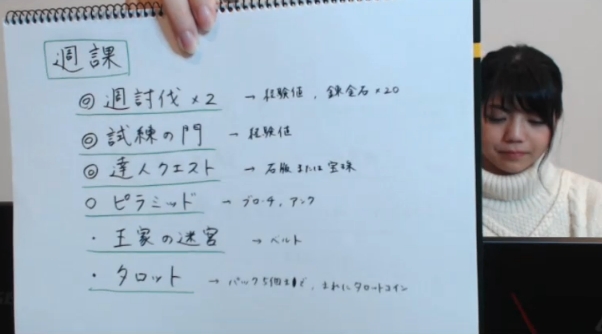 週課
◎ 週討伐×2 → 経験値, 錬金石×20
◎ 試練の門 → 経験値
◎ 達人クエスト → 石版または宝珠
○ ピラミッド → ブローチ, アンク
・ 王家の迷宮 → ベルト
・ タロット → パック5個まで, まれにタロットコイン